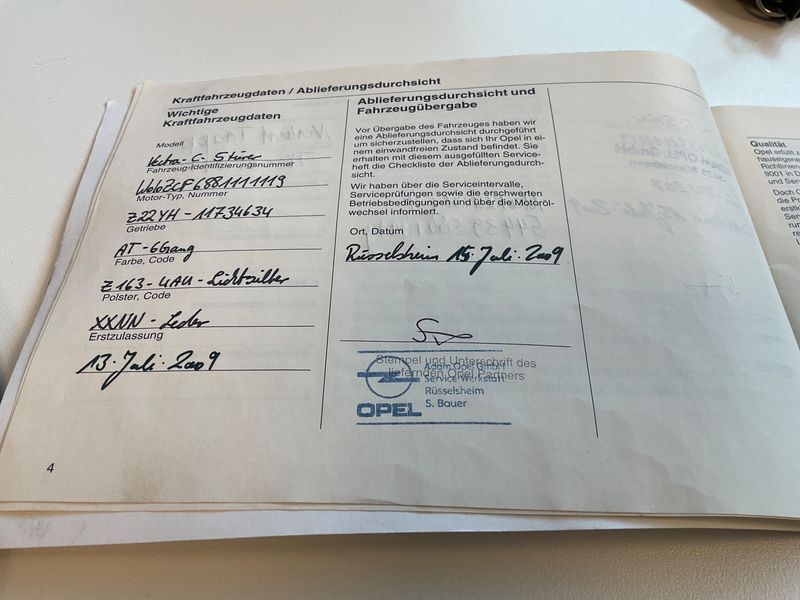 Kraftfahrzeugdaten / Ablieferungsdurchsicht
Wichtige
Kraftfahrzeugdaten
Modell
Vectra-C-Stürer
Fahrzeug-Identifizierungsnummer
W0L0ZCF6881111119
Motor-Typ, Nummer
Z22YH - 11734634
Getriebe
AT-6Gang
Farbe, Code
Z163-4AU-Lichtsilber
Polster, Code
XXNN - Leder
Erstzulassung
13. Juli. 2009
4
Ablieferungsdurchsicht und
Fahrzeugübergabe
Vor Übergabe des Fahrzeuges haben wir
eine Ablieferungsdurchsicht durchgeführt
um sicherzustellen, dass sich Ihr Opel in ei-
nem einwandfreien Zustand befindet. Sie
erhalten mit diesem ausgefüllten Service-
heft die Checkliste der Ablieferungsdurch-
sicht.
Wir haben über die Serviceintervalle,
Serviceprüfungen sowie die erschwerten
Betriebsbedingungen und über die Motoröl-
wechsel informiert.
Ort, Datum
Rüsselsheim 15. Juli. 2009
Stempel und Unterschrift des
liefernden Opel Partners
Adam Opel GmbH
Service-Werkstatt
Rüsselsheim
S. Bauer
OPEL
Qualität
Opel erfüllt
hauseigene
9001 in
und
Doch
die